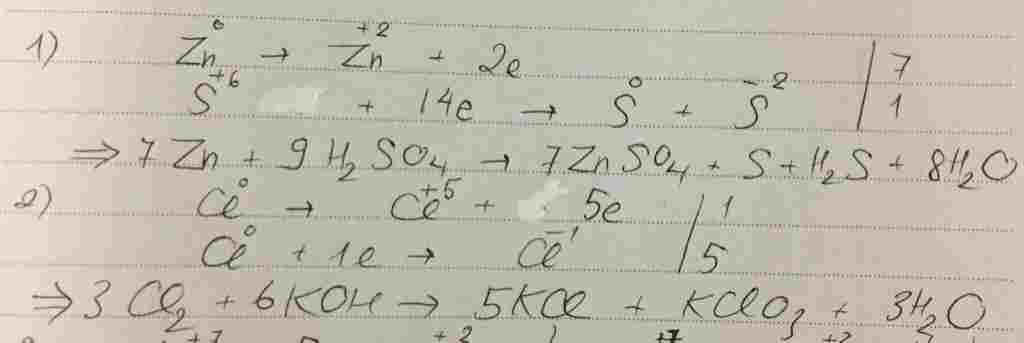 1) Zn⁰ → Zn⁺² + 2e | 7
S⁺⁶ + 14e → S⁰ + S⁻² | 1
⇒ 7 Zn + 9 H₂SO₄ → 7 ZnSO₄ + S + H₂S + 8H₂O
2) Cl⁰ → Cl⁺⁵ + 5e | 1
Cl⁰ + 1e → Cl⁻¹ | 5
⇒ 3 Cl₂ + 6KOH → 5KCl + KClO₃ + 3H₂O